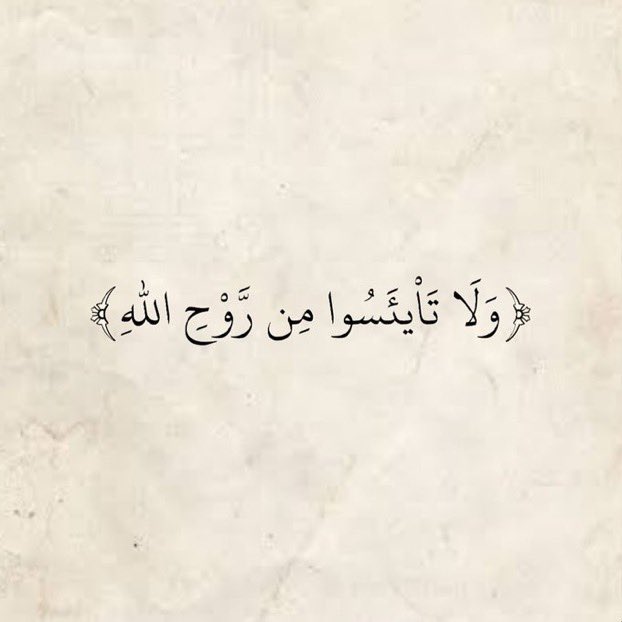 ﴿وَلَا تَاْيْئَسُوا مِن رَّوْحِ اللهِ﴾